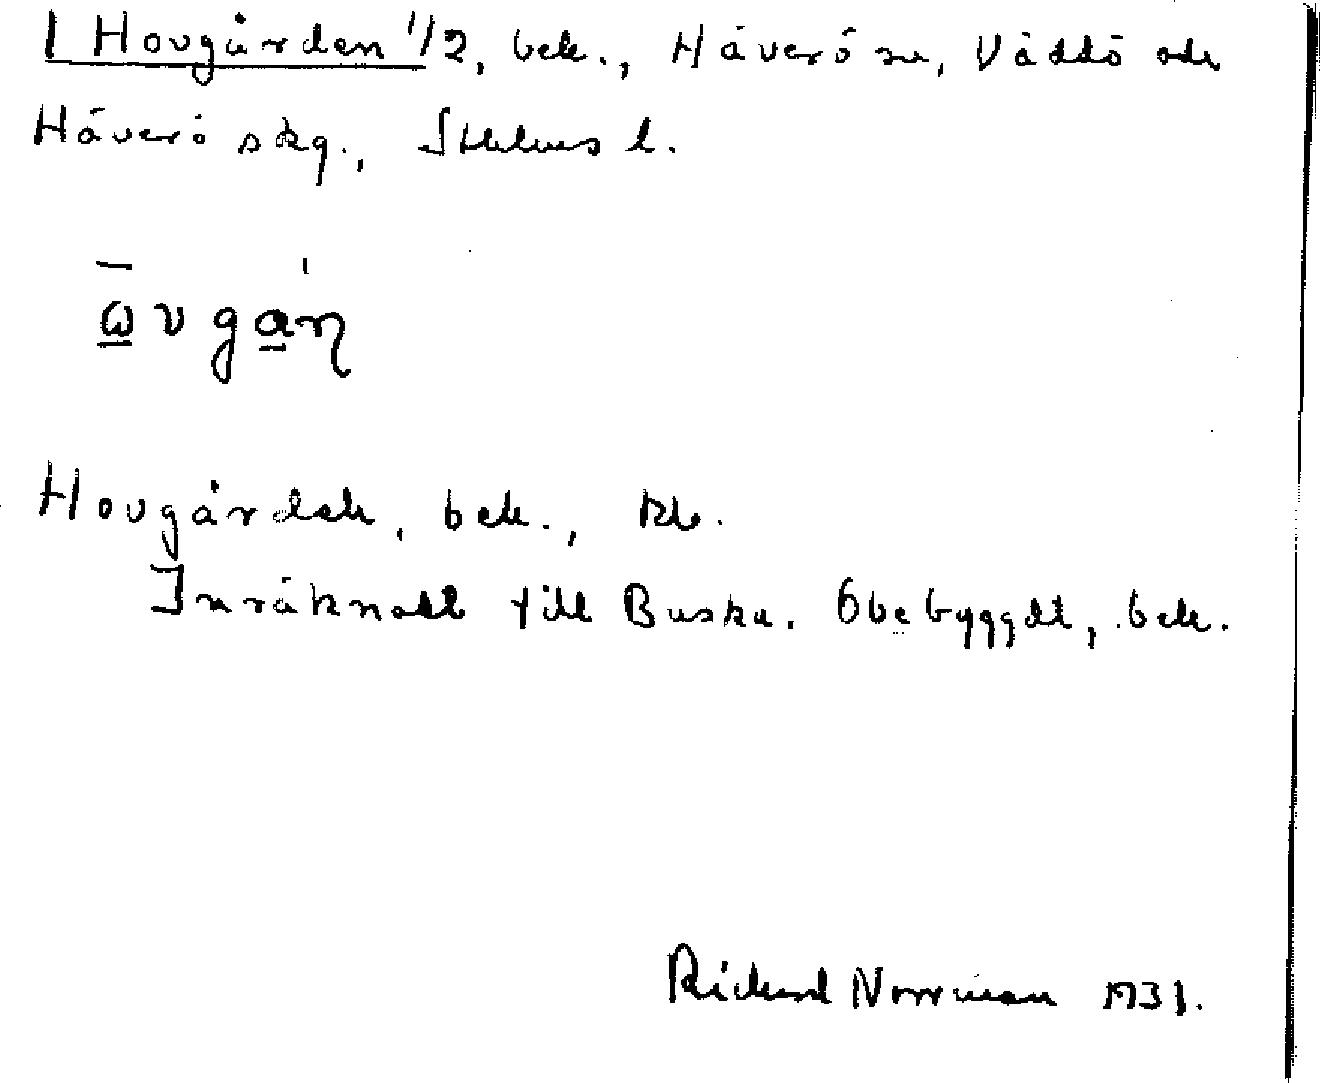 1 Hovgården 1/2, bek., Häverö sn, Väddö och
Häverö skg., Sthlms l.
ωvgan
Hovgårdsh, bek., Rb.
Inräknatt till Buska. Obebyggdt, bek.
Richard Norrman 1931.